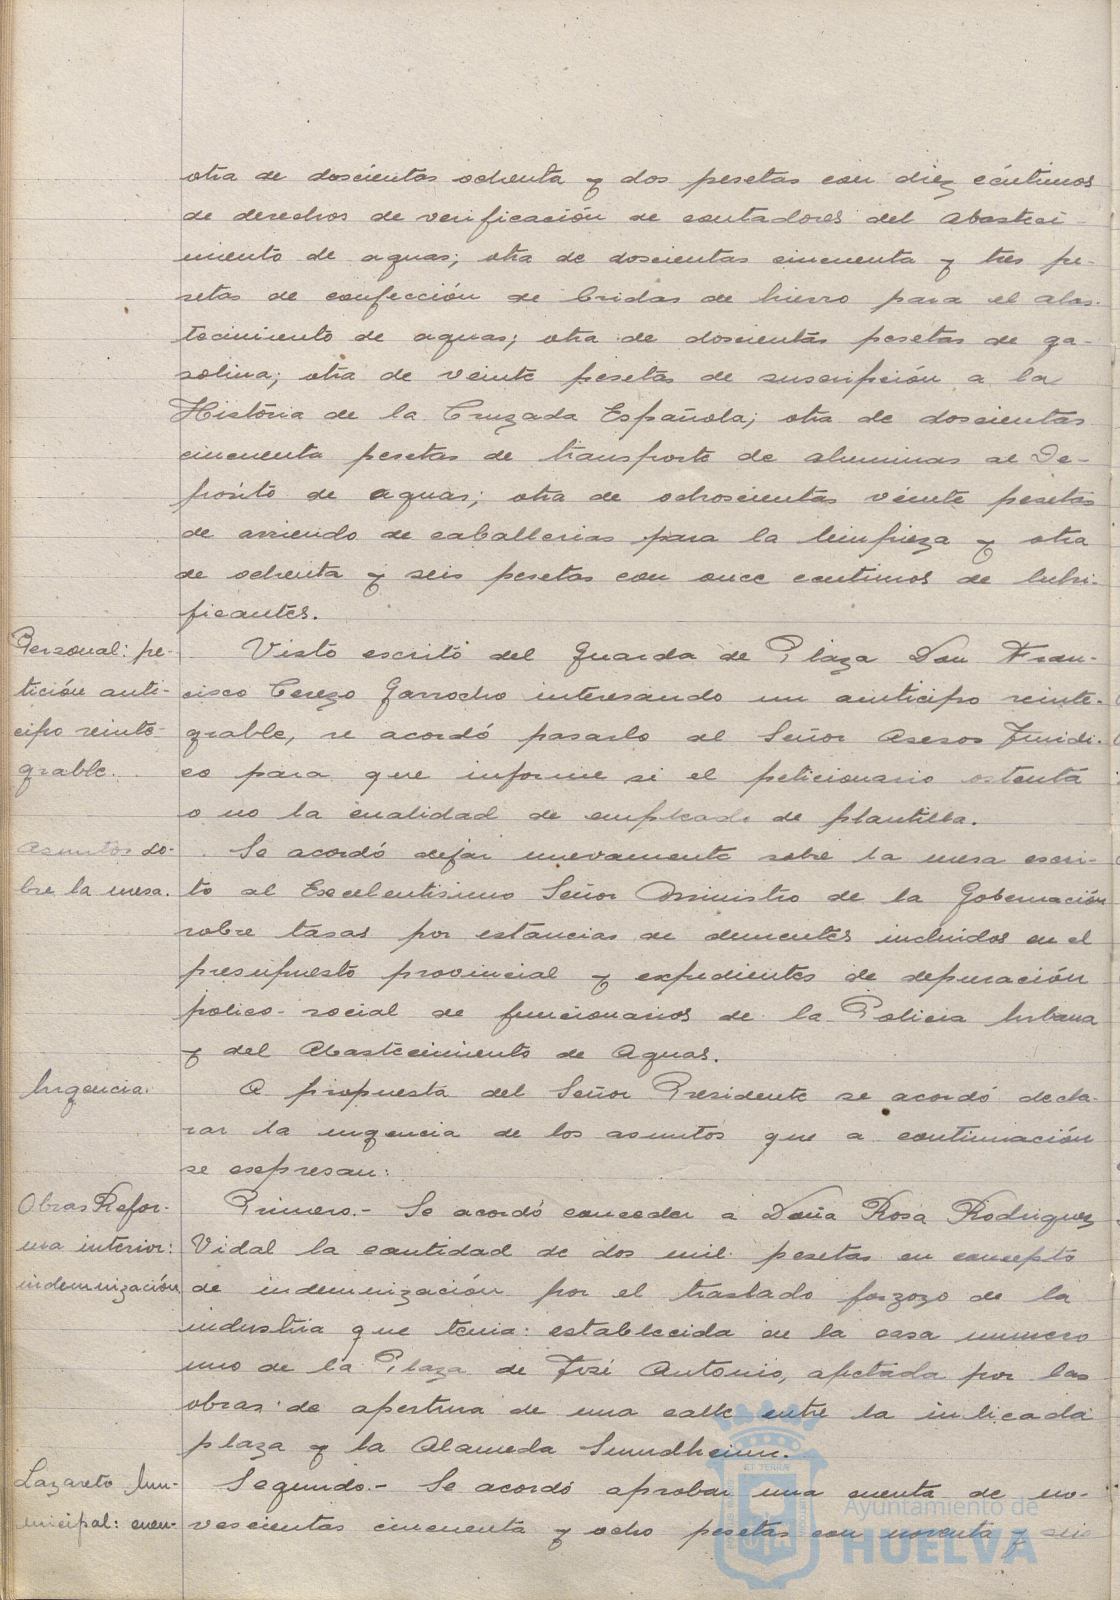 otra de doscientas ochenta y dos pesetas con diez céntimos
de derechos de verificación de contadores del Abasteci-
miento de aguas; otra de doscientas cincuenta y tres pe-
setas de confección de bridas de hierro para el abas-
tecimiento de aguas; otra de doscientas pesetas de ga-
solina; otra de veinte pesetas de suscripción a la
História de la Cruzada Española; otra de doscientas
cincuenta pesetas de transporte de aluminas al De-
pósito de aguas; otra de ochoscientas veinte pesetas
de arriendo de caballerias para la limpieza y otra
de ochenta y seis pesetas con once centimos de lubri-
ficantes.
Personal: pe-
tición anti-
cipo reinte-
grable.
Visto escrito del Guarda de Plaza Don Fran-
cisco Cerezo Garrocho interesando un anticipo reinte-
grable, se acordó pasarlo al Señor Asesor Juridi-
co para que informe si el peticionario ostenta
o no la cualidad de empleado de plantilla.
Asuntos so-
bre la mesa.
Se acordó dejar nuevamente sobre la mesa escri-
to al Excelentisimo Señor Ministro de la Gobernación
sobre tasas por estancias de dementes incluidos en el
presupuesto provincial y expedientes de depuración
politico-social de funcionarios de la Policia Urbana
y del Abastecimiento de Aguas.
Urgencia.
A propuesta del Señor Presidente se acordó decla-
rar la urgencia de los asuntos que a continuación
se expresan:
Obras Refor-
ma interior:
indemnización
Primero.- Se acordó conceder a Doña Rosa Rodriguez
Vidal la cantidad de dos mil pesetas en concepto
de indemnización por el traslado forzozo de la
industria que tenia establecida en la casa numero
uno de la Plaza de José Antonio, afectada por las
obras de apertura de una calle entre la indicada
plaza y la Alameda Sundheim.
Lazareto Mu-
nicipal: cuen-
Segundo.- Se acordó aprobar una cuenta de no-
vescientas cincuenta y ocho pesetas con noventa y seis
Ayuntamiento de
HUELVA